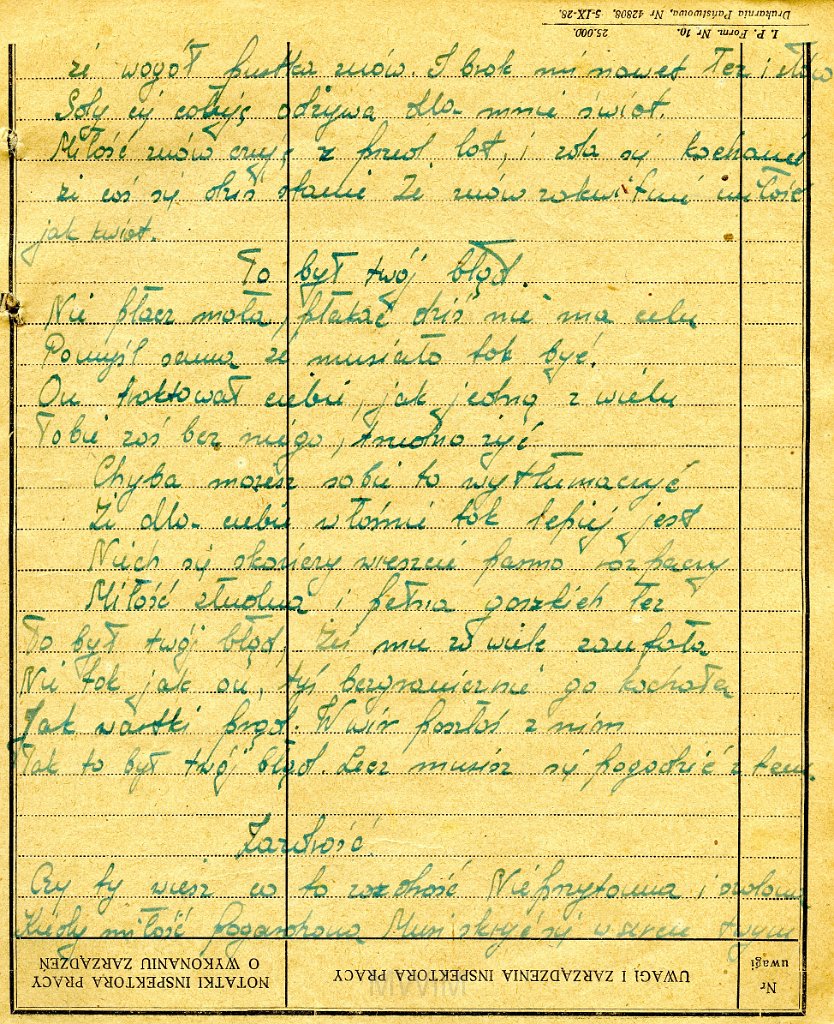 I. P. Form. Nr 10. 25.000.
Drukarnia Państwowa, Nr 42808. 5-IX-28.
że wogół pustka znów. I brak mi nawet łez i słów
Gdy cię całuję odżywa dla mnie świat.
Miłość znów czuję z przed lat, i zda się kochanie
że coś się dziś stanie Że znów zakwitnie miłość
jak kwiat.
To był twój błąd.
Nie płacz mała, płakać dziś nie ma celu
Pomyśl sama że musiało tak być.
On traktował ciebie, jak jedną z wielu
Tobie zaś bez niego, trudno żyć
Chyba możesz sobie to wytłumaczyć
Że dla ciebie właśnie tak lepiej jest
Niech się skończy wreszcie pasmo rozpaczy
Miłość złudna i pełna gorzkich łez
To był twój błąd, Żeś mu za wiele zaufała
Nie tak jak on, tyś bezgranicznie go kochała
Jak wartki prąd. W wir poszłaś z nim
Tak to był twój błąd. Lecz musisz się pogodzić z tem.
Zazdrość.
Czy ty wiesz co to zazdrość Nieprzytomna i szalona
Kiedy miłość pogardzona Musi skryć się w sercu twym
Nr uwagi
UWAGI I ZARZĄDZENIA INSPEKTORA PRACY
NOTATKI INSPEKTORA PRACY
O WYKONANIU ZARZĄDZEŃ